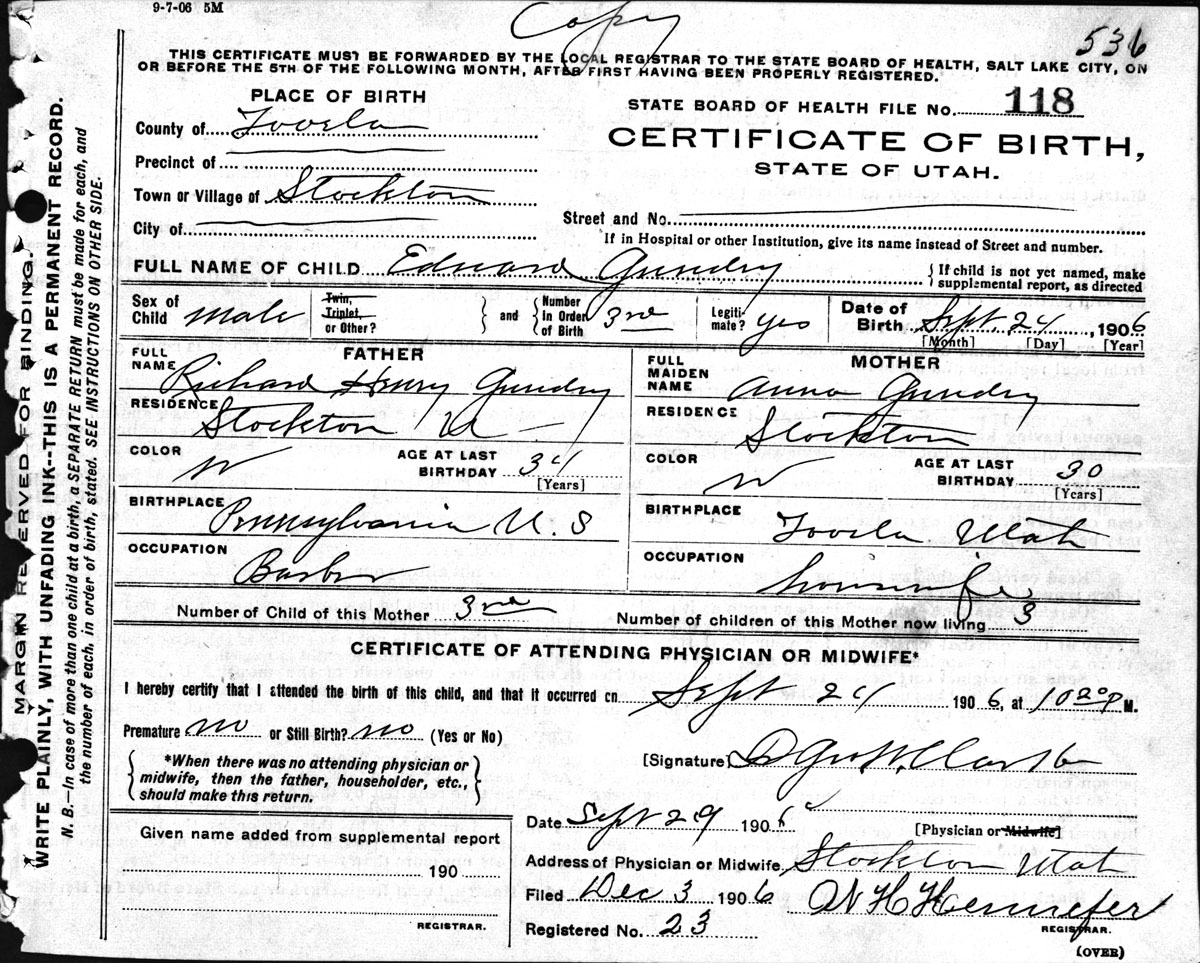 9-7-06 5M
Copy
536
THIS CERTIFICATE MUST BE FORWARDED BY THE LOCAL REGISTRAR TO THE STATE BOARD OF HEALTH, SALT LAKE CITY, ON
OR BEFORE THE 5TH OF THE FOLLOWING MONTH, AFTER FIRST HAVING BEEN PROPERLY REGISTERED.
MARGIN RESERVED FOR BINDING.
WRITE PLAINLY, WITH UNFADING INK--THIS IS A PERMANENT RECORD.
N. B.—In case of more than one child at a birth, a SEPARATE RETURN must be made for each, and
the number of each, in order of birth, stated. SEE INSTRUCTIONS ON OTHER SIDE.
PLACE OF BIRTH
County of Tooela
Precinct of
Town or Village of Stockton
City of
STATE BOARD OF HEALTH FILE No. 118
CERTIFICATE OF BIRTH,
STATE OF UTAH.
Street and No.
If in Hospital or other Institution, give its name instead of Street and number.
FULL NAME OF CHILD Edward Gundry
{ If child is not yet named, make
supplemental report, as directed
Sex of Child male
Twin, Triplet, or Other?
} and { Number In Order of Birth 3rd
Legiti-mate? yes
Date of Birth Sept 24, 1906
[Month] [Day] [Year]
FATHER
FULL NAME Richard Henry Gundry
RESIDENCE Stockton U
COLOR W AGE AT LAST BIRTHDAY 34
[Years]
BIRTHPLACE Pennsylvania U. S
OCCUPATION Barber
MOTHER
FULL MAIDEN NAME Anna Gundry
RESIDENCE Stockton
COLOR W AGE AT LAST BIRTHDAY 30
[Years]
BIRTHPLACE Tooela Utah
OCCUPATION housewife
Number of Child of this Mother 3rd Number of children of this Mother now living 3
CERTIFICATE OF ATTENDING PHYSICIAN OR MIDWIFE*
I hereby certify that I attended the birth of this child, and that it occurred on Sept 24 1906, at 10 20 P M.
Premature no or Still Birth? no (Yes or No)
{ *When there was no attending physician or
midwife, then the father, householder, etc.,
should make this return. }
[Signature]
[Physician or Midwife]
Date Sept 29 1906
Address of Physician or Midwife Stockton Utah
Filed Dec 3 1906
Registered No. 23
REGISTRAR.
(OVER)
Given name added from supplemental report
190
REGISTRAR.